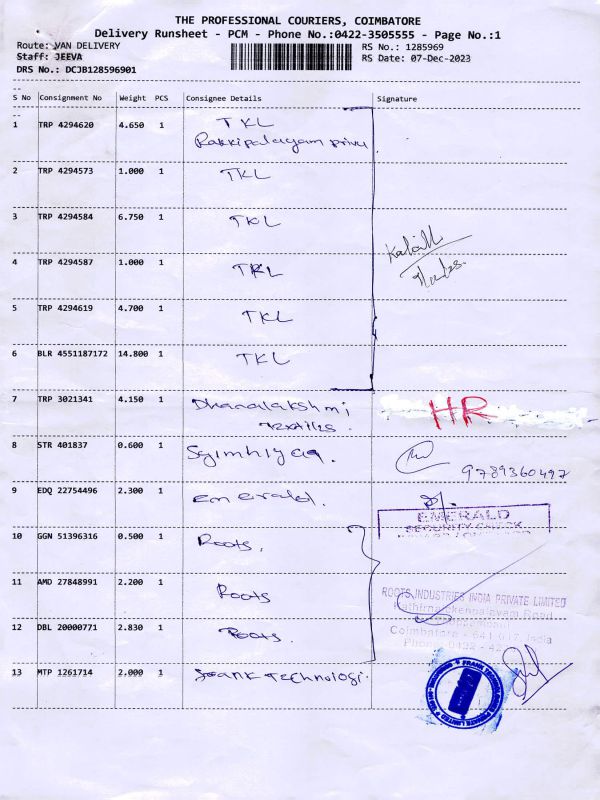 THE PROFESSIONAL COURIERS, COIMBATORE
Delivery Runsheet - PCM - Phone No.:0422-3505555 - Page No.:1
Route: VAN DELIVERY RS No.: 1285969
Staff: JEEVA RS Date: 07-Dec-2023
DRS No.: DCJB128596901
S No Consignment No Weight PCS Consignee Details Signature
1 TRP 4294620 4.650 1 TKL
Rakkipalayam
2 TRP 4294573 1.000 1 TKL
3 TRP 4294584 6.750 1 TKL
4 TRP 4294587 1.000 1 TKL
5 TRP 4294619 4.700 1 TKL
6 BLR 4551187172 14.800 1 TKL
7 TRP 3021341 4.150 1 Dhanalakshmi HR
Textiles.
8 STR 401837 0.600 1
9789360497
9 EDQ 22754496 2.300 1 Emerald.
EMERALD
SECURITY CHECK
10 GGN 51396316 0.500 1 Roots.
11 AMD 27848991 2.200 1 Roots
ROOTS INDUSTRIES INDIA PRIVATE LIMITED
Road
12 DBL 20000771 2.830 1 Roots.
Coimbatore - 641 017, India
Phone: 0422 -
13 MTP 1261714 2.000 1 Technologi.
FRANK TECHNOLOGIES PRIVATE LIMITED